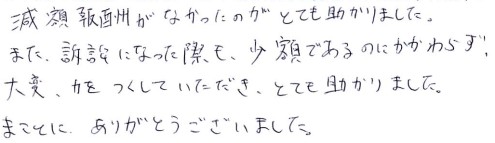 減額報酬がなかったのがとても助かりました。
また、訴訟になった際も、少額であるのにかかわらず、
大変、力をつくしていただき、とても助かりました。
まことに、ありがとうございました。